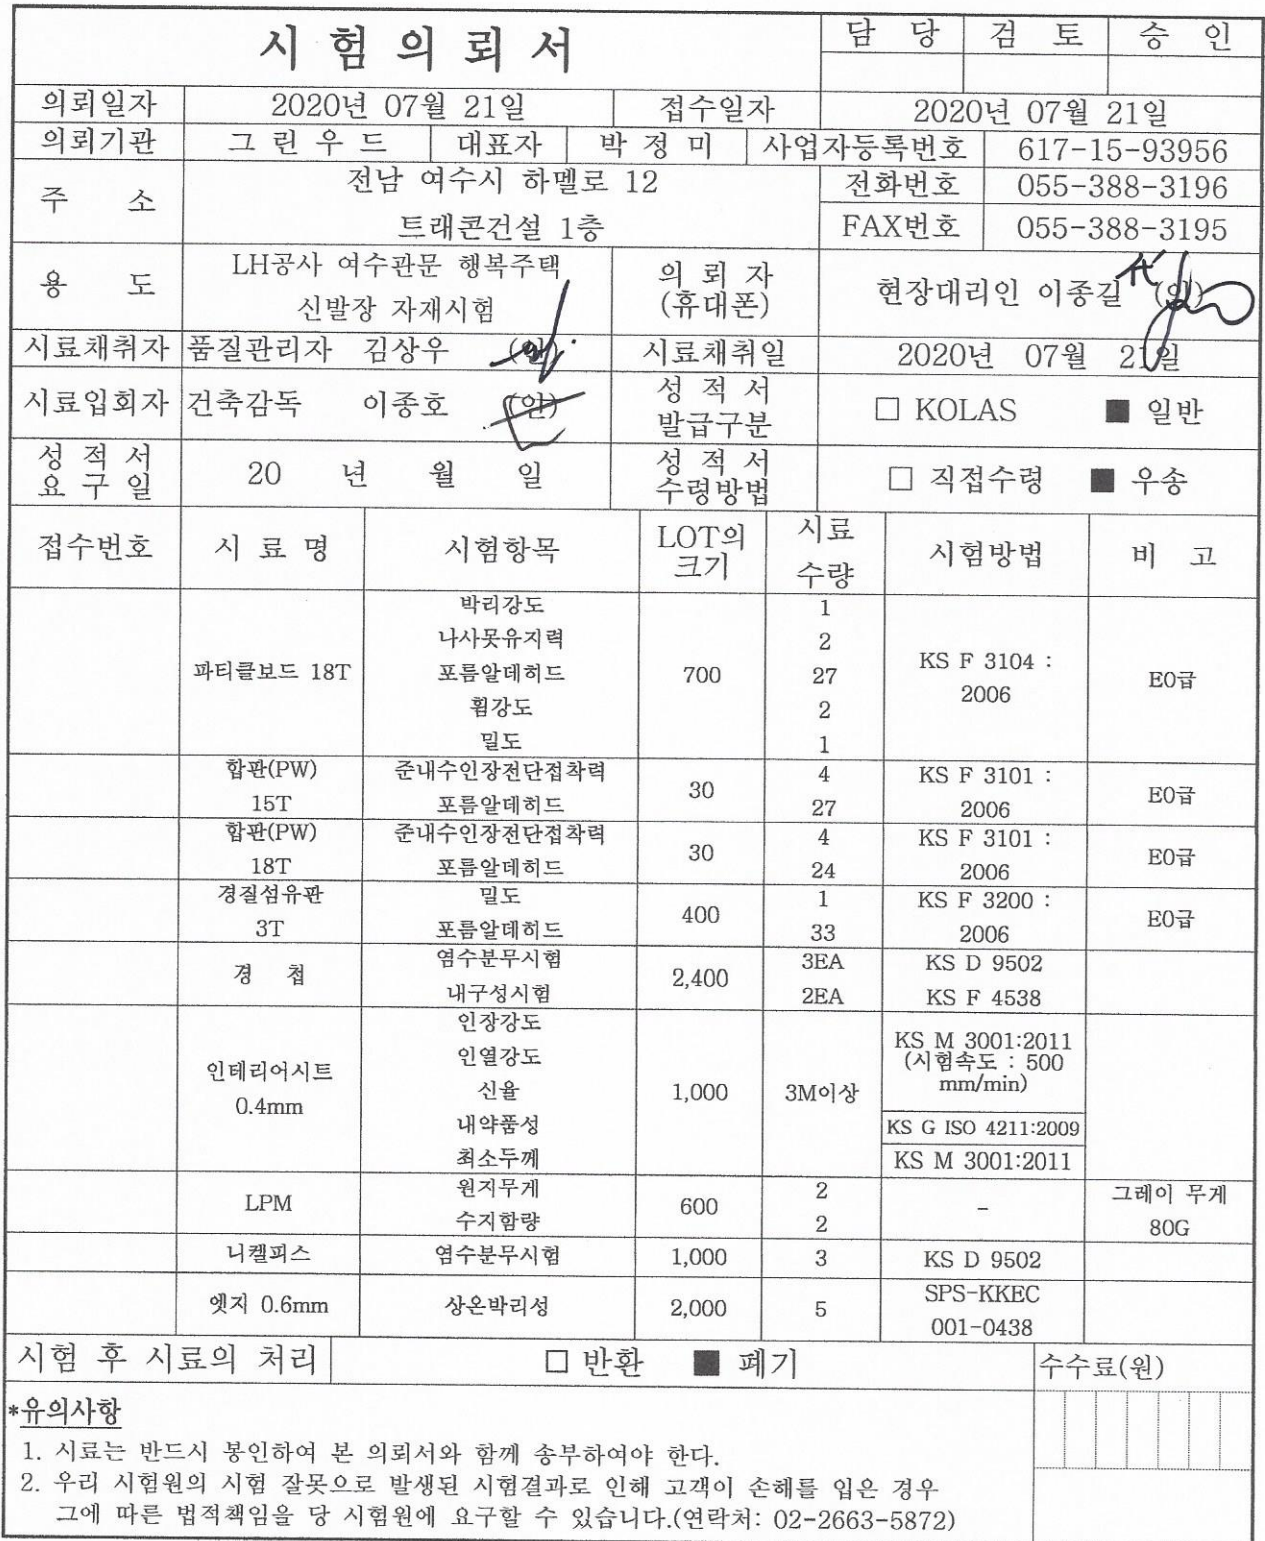 시 험 의 뢰 서
담 당 검 토 승 인
의뢰일자 2020년 07월 21일 접수일자 2020년 07월 21일
의뢰기관 그 린 우 드 대표자 박 정 미 사업자등록번호 617-15-93956
주 소 전남 여수시 하멜로 12 트래콘건설 1층
전화번호 055-388-3196
FAX번호 055-388-3195
용 도 LH공사 여수관문 행복주택 신발장 자재시험
의 뢰 자 (휴대폰) 현장대리인 이종길 (인)
시료채취자 품질관리자 김상우 (인) 시료채취일 2020년 07월 21일
시료입회자 건축감독 이종호 (인)
성 적 서 발급구분 □ KOLAS ■ 일반
성 적 서 요 구 일 20 년 월 일
성 적 서 수령방법 □ 직접수령 ■ 우송
접수번호 시 료 명 시험항목 LOT의 크기 시료 수량 시험방법 비 고
파티클보드 18T
박리강도
나사못유지력
포름알데히드
휨강도
밀도
700
1
2
27
2
1
KS F 3104 :
2006
E0급
합판(PW)
15T
준내수인장전단접착력
포름알데히드
30
4
27
KS F 3101 :
2006
E0급
합판(PW)
18T
준내수인장전단접착력
포름알데히드
30
4
24
KS F 3101 :
2006
E0급
경질섬유판
3T
밀도
포름알데히드
400
1
33
KS F 3200 :
2006
E0급
경 첩
염수분무시험
내구성시험
2,400
3EA
2EA
KS D 9502
KS F 4538
인테리어시트
0.4mm
인장강도
인열강도
신율
내약품성
최소두께
1,000
3M이상
KS M 3001:2011
(시험속도 : 500
mm/min)
KS G ISO 4211:2009
KS M 3001:2011
LPM
원지무게
수지함량
600
2
2
-
그레이 무게
80G
니켈피스 염수분무시험 1,000 3 KS D 9502
엣지 0.6mm 상온박리성 2,000 5
SPS-KKEC
001-0438
시험 후 시료의 처리 □ 반환 ■ 폐기 수수료(원)
*유의사항
1. 시료는 반드시 봉인하여 본 의뢰서와 함께 송부하여야 한다.
2. 우리 시험원의 시험 잘못으로 발생된 시험결과로 인해 고객이 손해를 입은 경우
그에 따른 법적책임을 당 시험원에 요구할 수 있습니다.(연락처: 02-2663-5872)